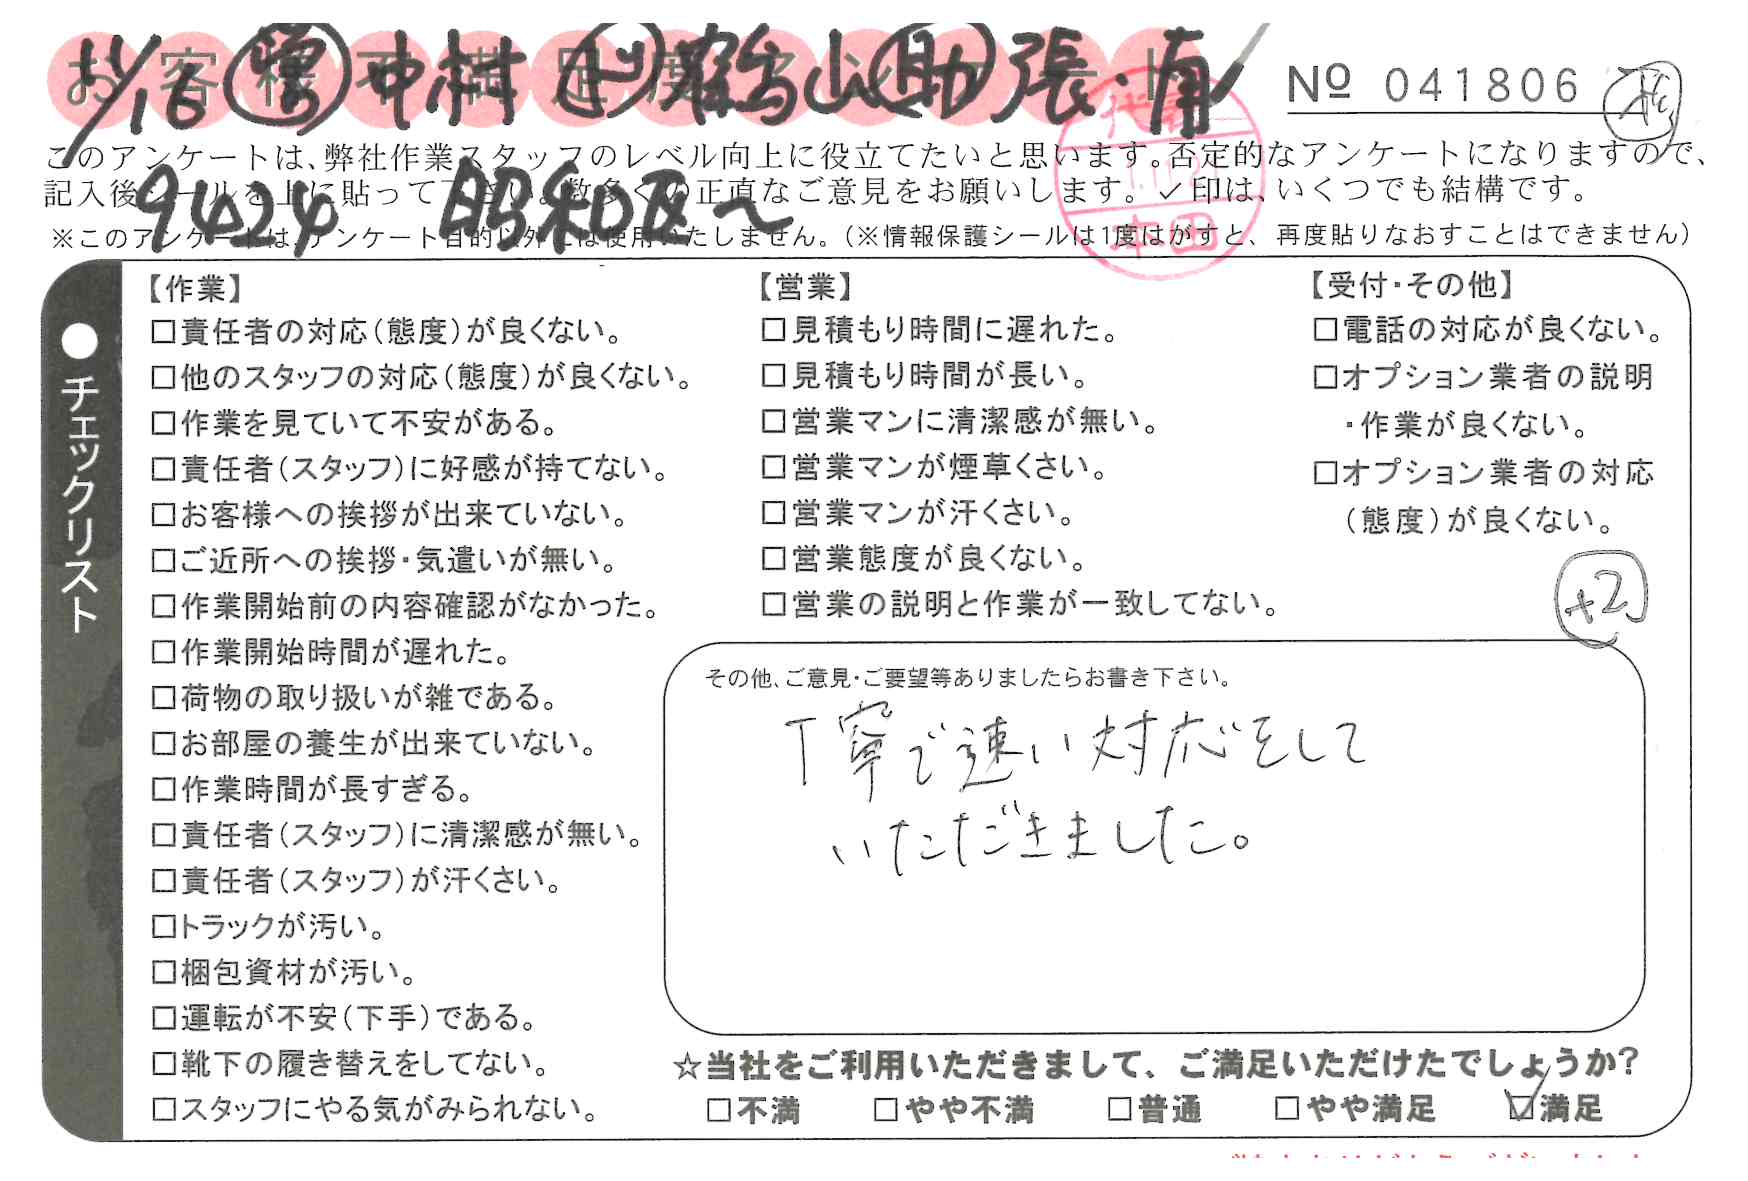 お客様不満足度アンケート
11/16 営 中村 ド 鶴山 助 張・浦
No 041806
このアンケートは、弊社作業スタッフのレベル向上に役立てたいと思います。否定的なアンケートになりますので、
記入後シールを上に貼って下さい。数多くの正直なご意見をお願いします。✓印は、いくつでも結構です。
9424 昭和区〜
※このアンケートは、アンケート目的以外には使用いたしません。(※情報保護シールは1度はがすと、再度貼りなおすことはできません)
本田
●チェックリスト
【作業】
□責任者の対応(態度)が良くない。
□他のスタッフの対応(態度)が良くない。
□作業を見ていて不安がある。
□責任者(スタッフ)に好感が持てない。
□お客様への挨拶が出来ていない。
□ご近所への挨拶・気遣いが無い。
□作業開始前の内容確認がなかった。
□作業開始時間が遅れた。
□荷物の取り扱いが雑である。
□お部屋の養生が出来ていない。
□作業時間が長すぎる。
□責任者(スタッフ)に清潔感が無い。
□責任者(スタッフ)が汗くさい。
□トラックが汚い。
□梱包資材が汚い。
□運転が不安(下手)である。
□靴下の履き替えをしてない。
□スタッフにやる気がみられない。
【営業】
□見積もり時間に遅れた。
□見積もり時間が長い。
□営業マンに清潔感が無い。
□営業マンが煙草くさい。
□営業マンが汗くさい。
□営業態度が良くない。
□営業の説明と作業が一致してない。
【受付・その他】
□電話の対応が良くない。
□オプション業者の説明
・作業が良くない。
□オプション業者の対応
(態度)が良くない。
+2
その他、ご意見・ご要望等ありましたらお書き下さい。
丁寧で速い対応をして
いただきました。
☆当社をご利用いただきまして、ご満足いただけたでしょうか?
□不満 □やや不満 □普通 □やや満足 ☑満足